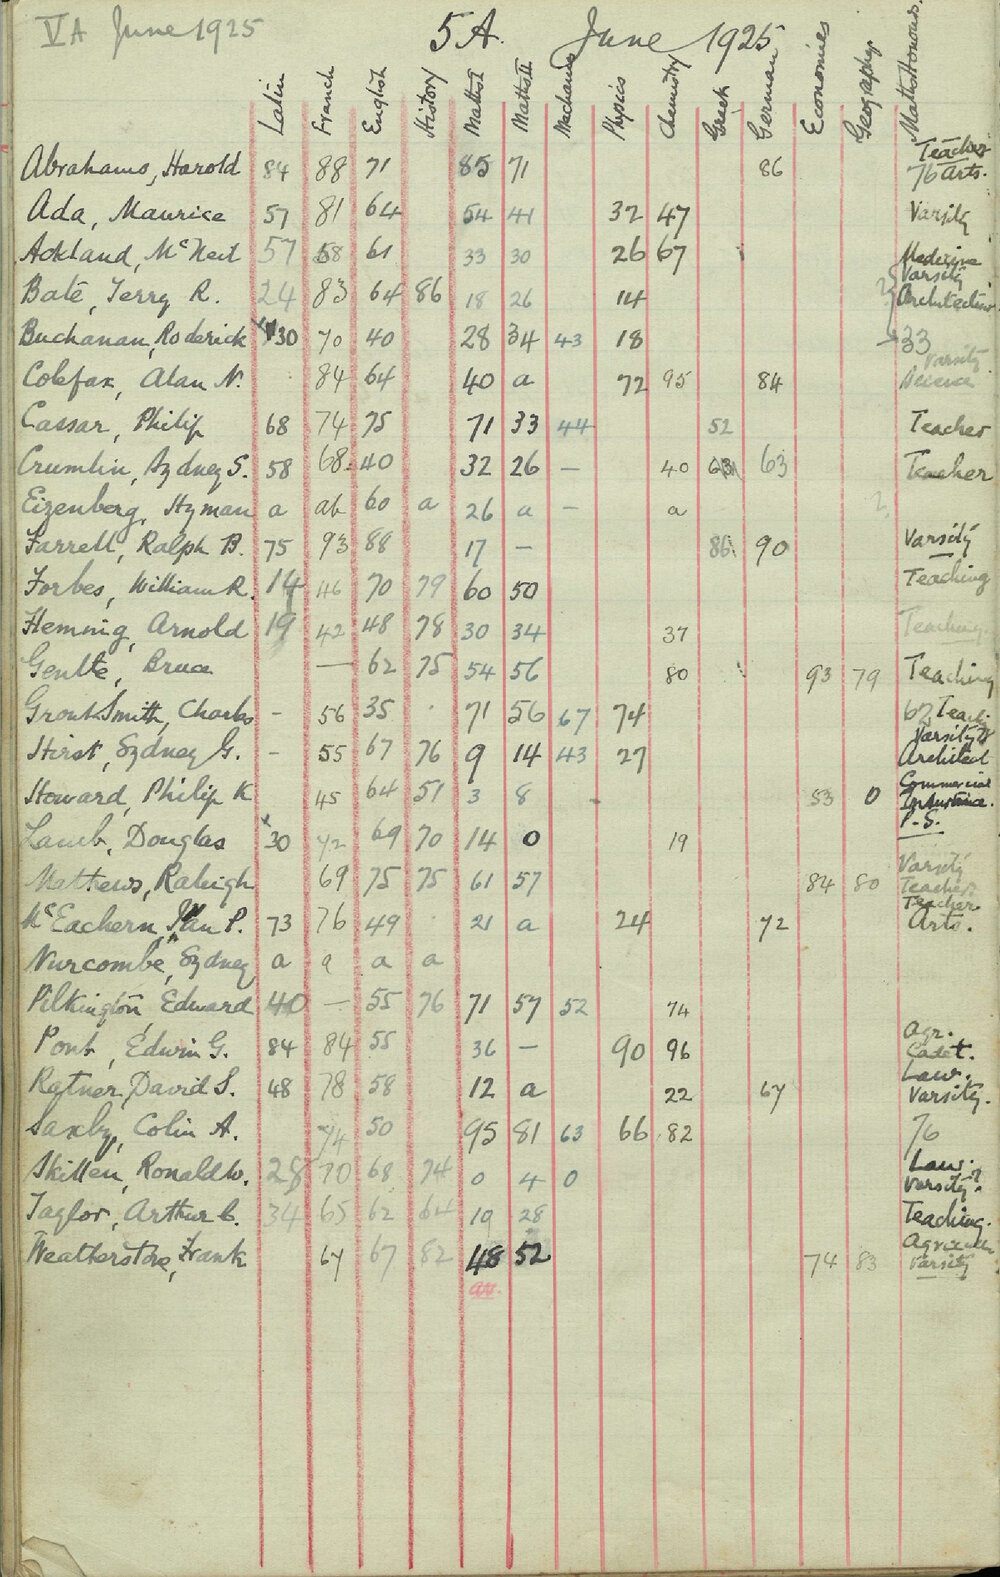 VA June 1925 5A. June 1925
Latin French English History Maths I Maths II Mechanics Physics Chemistry Greek German Economics Geography Maths Honours.
Abrahams, Harold 84 88 71 85 71 86 76 Teacher Arts.
Ada, Maurice 57 81 64 54 41 32 47 Varsity
Ackland, McNeil 57 58 61 33 30 26 67 Medicine Varsity
Bate, Terry R. 24 83 64 86 18 26 14 ? Architecture
Buchanan, Roderick 30 70 40 28 34 43 18 33
Colefax, Alan N. 84 64 40 a 72 95 84 Varsity Science
Cassar, Philip 68 74 75 71 33 44 52 Teacher
Crumlin, Sydney S. 58 68 40 32 26 — 40 63 Teacher
Eizenberg, Hyman a ab 60 a 26 a — a ?
Farrell, Ralph B. 75 93 88 17 — 86 90 Varsity
Forbes, William R. 14 46 70 79 60 50 Teaching
Hemnig, Arnold 19 42 48 78 30 34 37 Teaching.
Gentle, Bruce — 62 75 54 56 80 93 79 Teaching
GrontSmith, Charles - 56 35 71 56 67 74 62 Teach
Hirst, Sydney G. - 55 67 76 9 14 43 27 Varsity Architect
Howard, Philip K 45 64 51 3 8 53 0 Commercial Insurance. P.S.
Lamb, Douglas 30 42 69 70 14 0 19
Mathews, Raleigh 69 75 75 61 57 84 80 Varsity Teacher
McEachern, Ian P. 73 76 49 21 a 24 72 Teacher Arts.
Nurcombe, Sydney a a a a
Pilkington, Edward 40 — 55 76 71 57 52 74
Pont, Edwin G. 84 84 55 36 — 90 96 Agr. Cadet.
Ratner, David S. 48 78 58 12 a 22 67 Law. Varsity.
Saxby, Colin A. 74 50 95 81 63 66 82 76
Skillen, Ronald W. 28 70 68 74 0 4 0 Law. Varsity?
Taylor, Arthur C. 34 65 62 64 19 28 Teaching.
Weatherstone, Frank 67 67 82 48 52 74 83 Varsity
av.